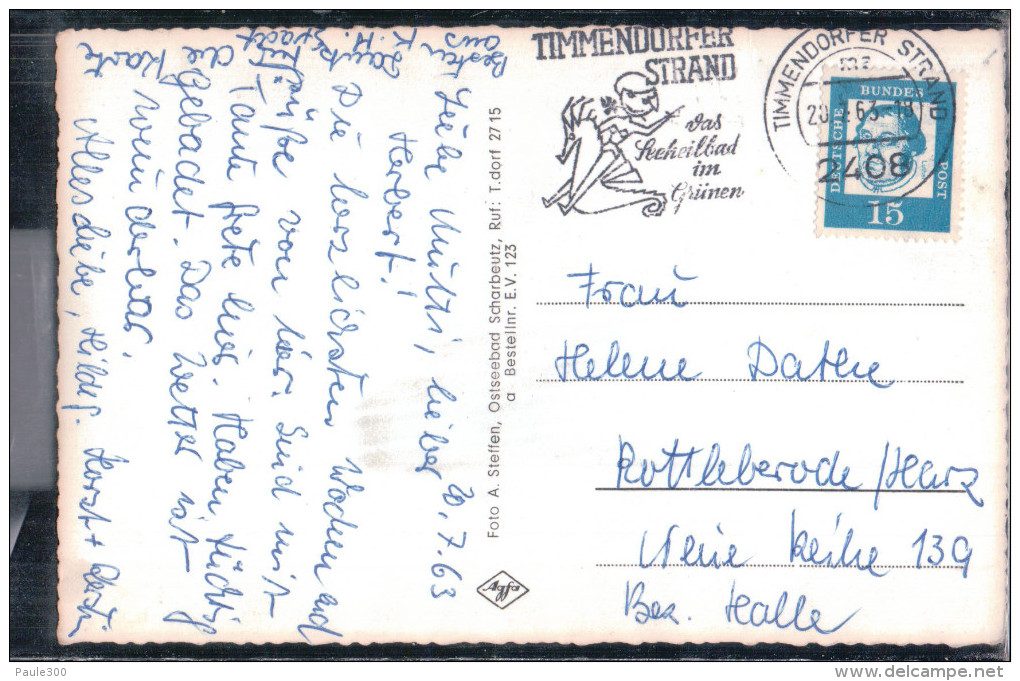 TIMMENDORFER
STRAND
das
Seeheilbad
im
Grünen
TIMMENDORFER STRAND
20. 63-18
2408
DEUTSCHE BUNDESPOST
15
Frau
Helene Dathe
Rottleberode/Harz
Neue Reihe 139
Bez. Halle
Foto A. Steffen, Ostseebad Scharbeutz, Ruf: T.dorf 27 15
a Bestellnr. E.V. 123
Agfa
20.7.63
Liebe Mutti, lieber
Herbert!
Die herzlichsten Wochenend
grüße von hier. Sind mit
Tante Grete hier. Haben tüchtig
gebadet. Das Wetter ist
wunderbar.
Alles Liebe, Hilde, Horst +
Besten
Dank
Karte
Paule300